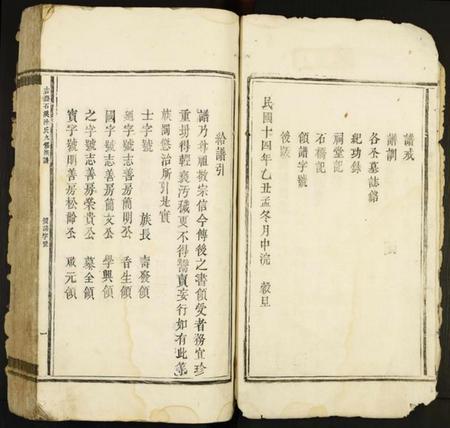 譜戒
譜訓
各公墓誌銘
紀功錄
祠堂記
石橋記
領譜字號
後跋
民國十四年乙丑孟冬月中浣 穀旦
給譜引
譜乃尊祖敬宗信今傳後之書領受者務宜珍
重毋得輕褻污穢更不得鬻賣妄行如有此弊
族間懲治所引是實
士字號 族長 壽發領
廻字號志善房簡明公 香生領
國字號志善房簡文公 學興領
之字號志善房榮貴公 墓全領
寶字號明善房松齡公 元領
領譜字號
一